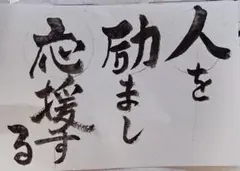 人を
励まし
応援する